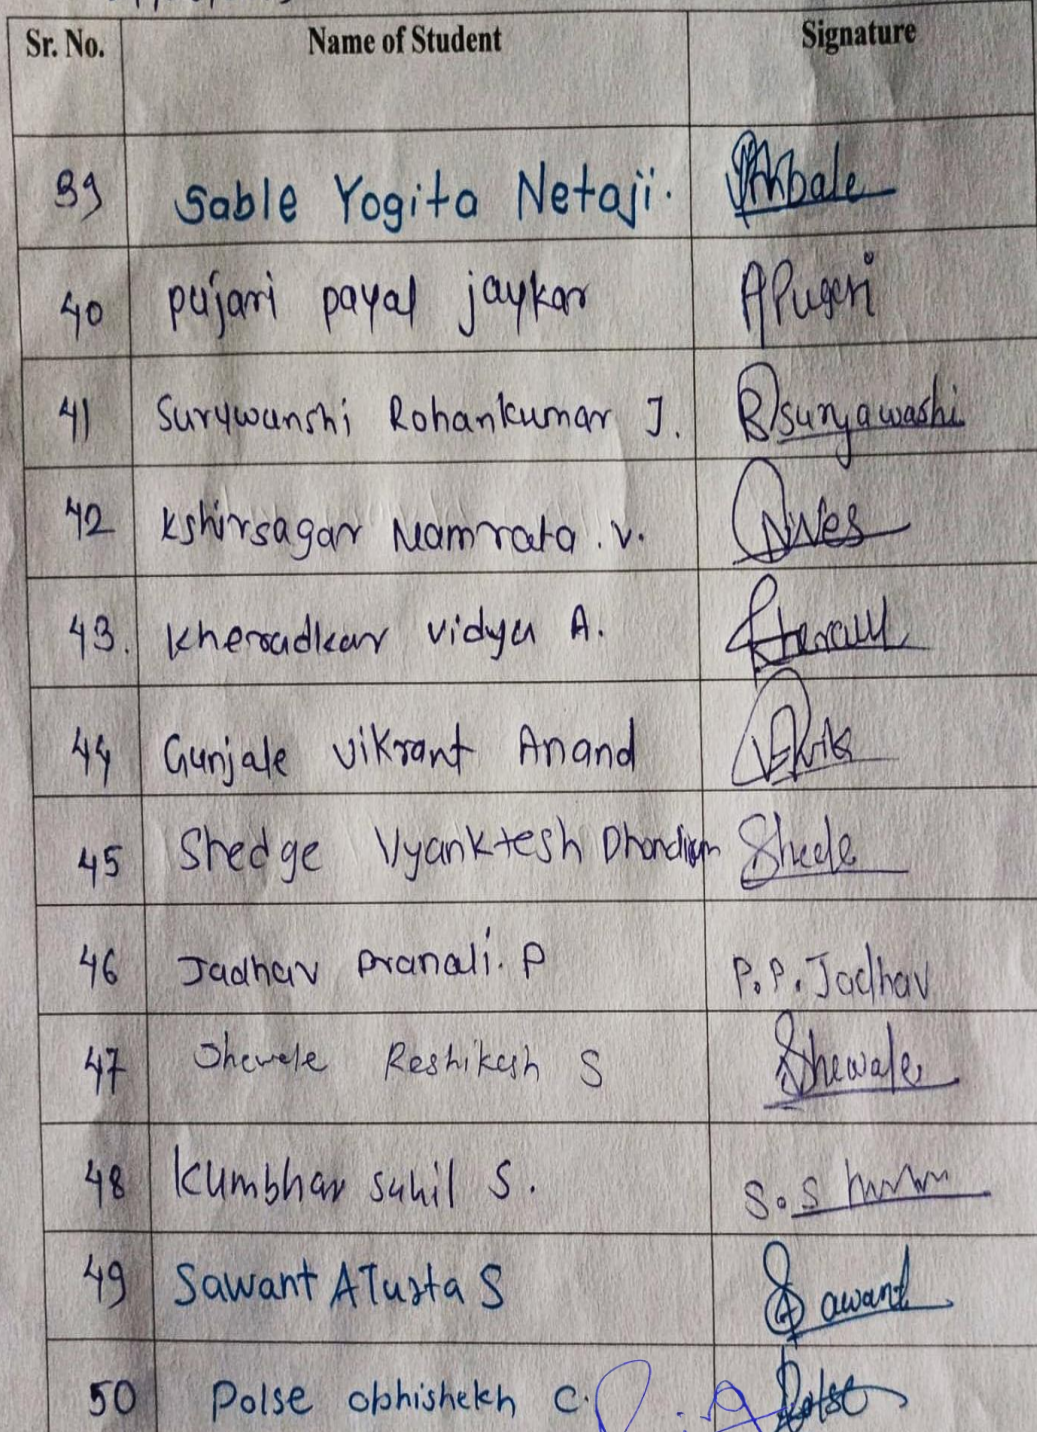 Sr. No. Name of Student Signature
39 Sable Yogita Netaji.
40 pujari payal jaykar APujari
41 Surywanshi Rohankumar J. Rsuryawashi
42 Kshirsagar Namrata . V.
43. Kheradkar vidya A.
44 Gunjale Vikrant Anand
45 Shedge Vyanktesh Dhondiram
46 Jadhav pranali. P P.P. Jadhav
47 Shewale Reshikesh S Shewale
48 Kumbhar sahil S. S.S
49 Sawant ATurta S Sawant
50 Polse abhishekh C. Polse